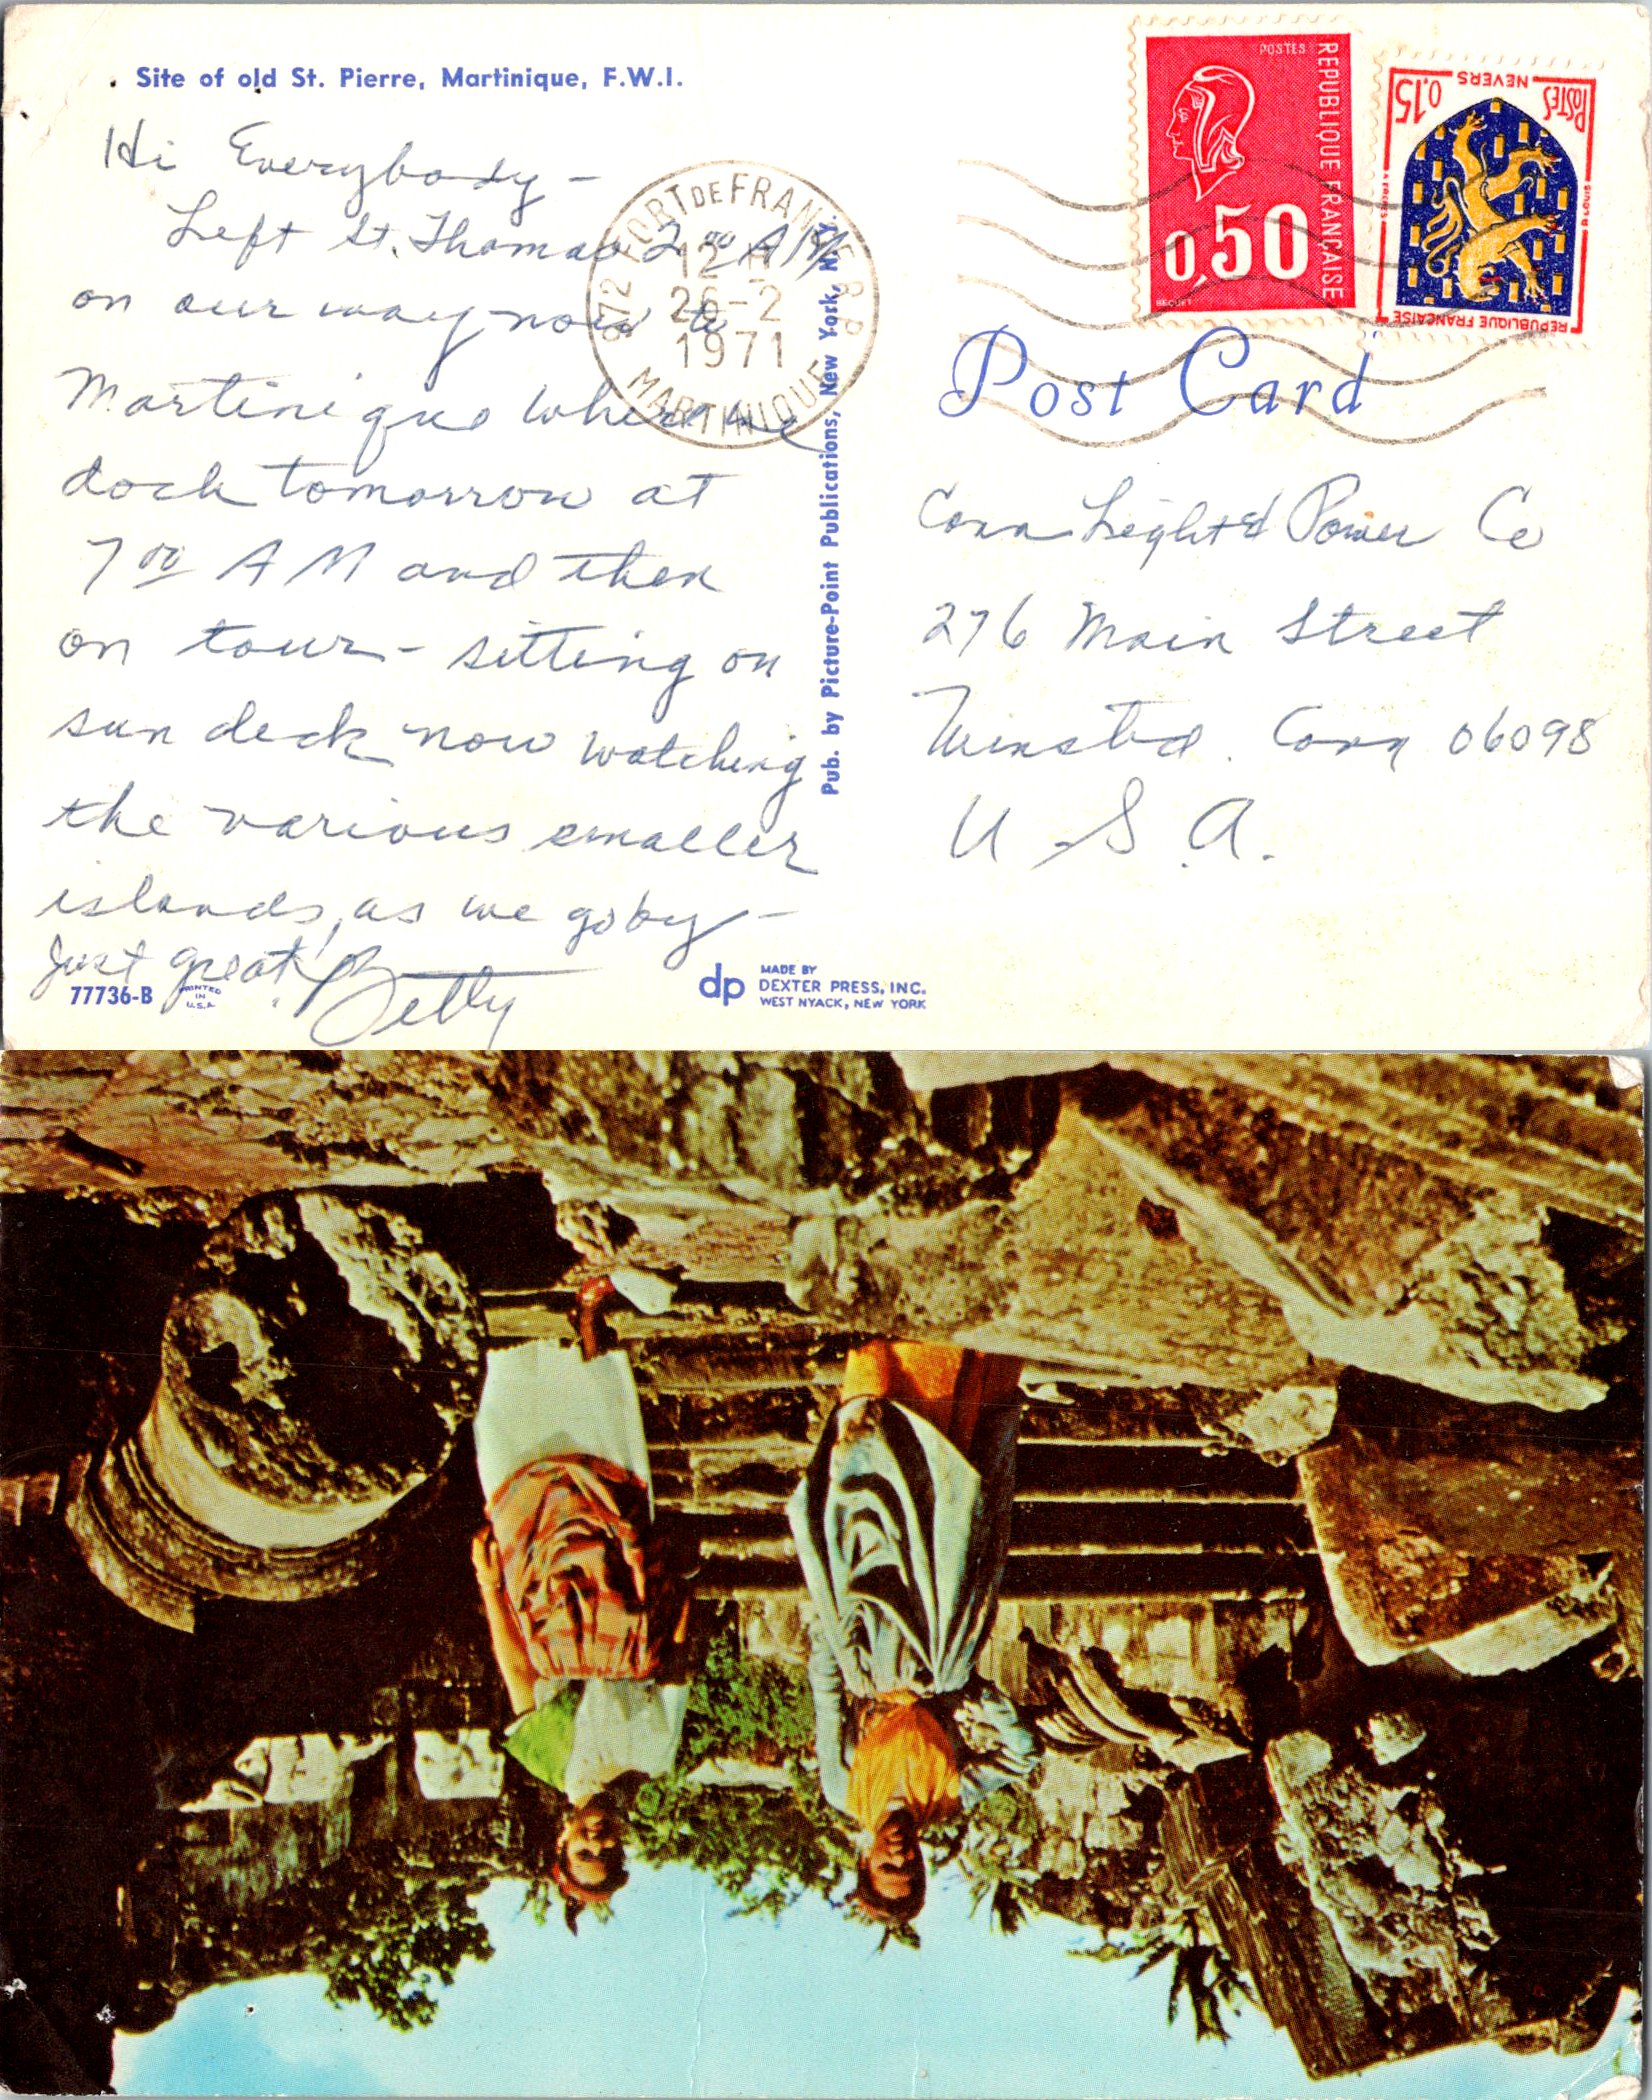 Site of old St. Pierre, Martinique, F.W.I.
Hi Everybody -
Left St. Thomas 2 00 AM
on our way now to
Martinique where we
dock tomorrow at
7 00 AM and then
on tour - sitting on
sun deck now watching
the various smaller
islands, as we go by -
Just great! Betty
77736-B
PRINTED
IN
U.S.A.
972 FORT DE FRANCE R.P.
12 H
26-2
1971
MARTINIQUE
Pub. by Picture-Point Publications, New York, N.Y.
dp
MADE BY
DEXTER PRESS, INC.
WEST NYACK, NEW YORK
POSTES
REPUBLIQUE FRANÇAISE
0,50
BEQUET
NEVERS
POSTES
0,15
REPUBLIQUE FRANÇAISE
Post Card
Conn Light & Power Co
276 Main Street
Winsted. Conn 06098
U.S.A.